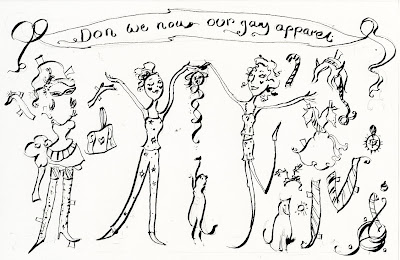 Don we now our gay apparel